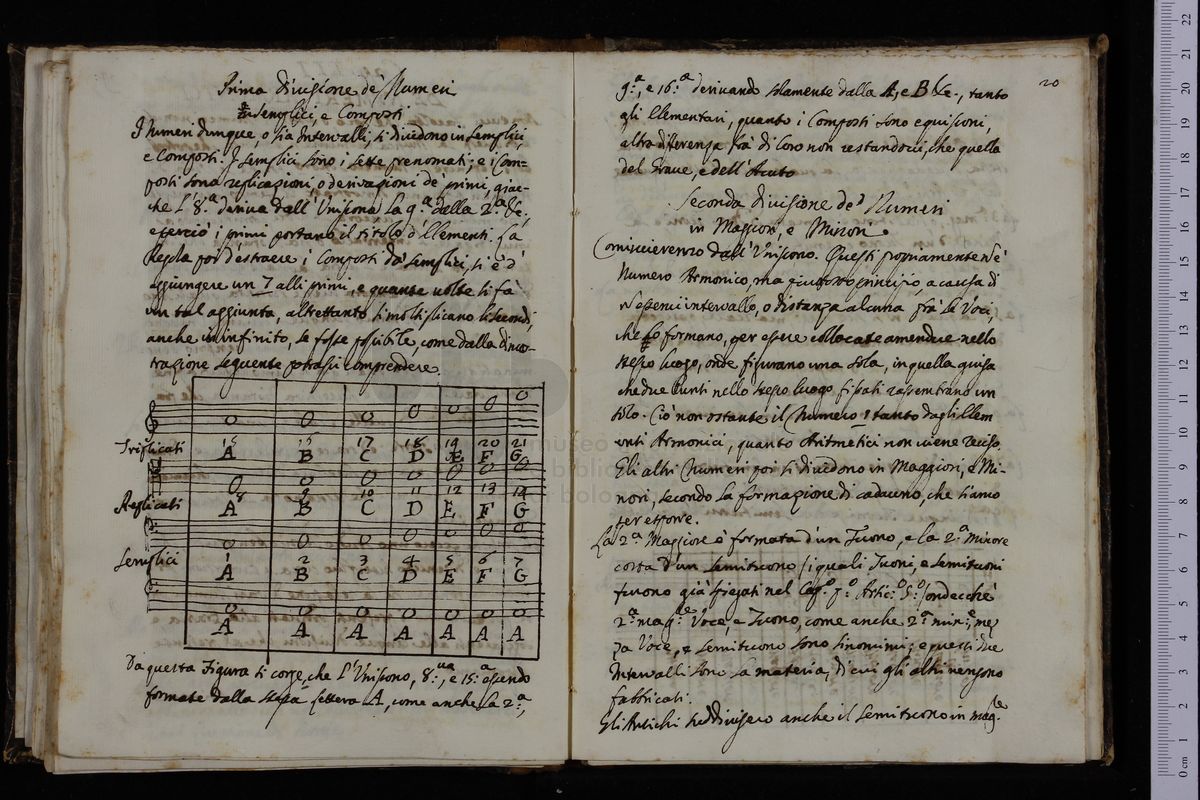 Prima divisione de' Numeri
in semplici, e Composti
I Numeri dunque, o sia Intervalli, si dividono in semplici
e Composti. I semplici sono i sette prenomati; e i Com=
posti sono replicazioni, o derivazioni de' primi, giac-
che L'8.ª deriva dall'Unisono La 9.ª dalla 2.ª &c,
e perciò i primi portano il titolo d'Ellementi. La
Regola poi d'estraere i Composti da' semplici, si è d'
aggiungere un 7 alli primi, e quante volte si fà
un tal aggiunta, altrettanto si moltiplicano li secondi,
anche in infinito, se fosse possibile, come dalla dimos-
trazione seguente potrassi comprendere.
Triplicati
15 16 17 18 19 20 21
A B C D Æ F G
Replicati
8 9 10 11 12 13 14
A B C D E F G
Semplici
1 2 3 4 5 6 7
A B C D E F G
A A A A A A A
Da questa Figura si corge, che L'Unisono, 8.va, e 15.ª essendo
formate dalla stessa Lettera A, come anche La 2.ª,
20
9.ª, e 16.ª derivando solamente dalla A, e B &c., tanto
gli Ellementari, quanto i Composti sono equisoni,
altra differenza frà di Loro non restandoci, che quella
del Grave, e dell'Acuto
Seconda divisione de' Numeri
in Maggiori, e Minori.
Comincieremo dall'Unisono. Questi propriamente n'è
Numero Armonico, ma piutosto principio, a causa di
n'esservi intervallo, o distanza alcuna frà Le Voci,
che Lo formano, per essere collocate amendue nello
stesso luogo, onde figurano una sola, in quella guisa
che due Punti nello stesso luogo fissati rassembrano un
solo. Ciò non ostante il Numero 1 tanto dagli Ellem
enti Armonici, quanto Aritmetici non viene reciso.
Gli altri Numeri poi si dividono in Maggiori, e Mi-
nori, secondo La formazione di caduno, che siamo
per esporre.
La 2.ª Maggiore è formata d'un Tuono, e la 2.ª Minore
costa d'un semituono (i quali Tuoni, e semituoni
furono già spiegati nel Cap.º Artic.º 5.º) ondecchè
2.ª mag.re Voce, e Tuono, come anche 2.ª min.re, me
za Voce, e semituono sono sinonimi; e questi due
Intervalli sono La materia, di cui gli altri vengono
fabbricati.
Gli Antichi suddivisero anche il semituono in mag.re